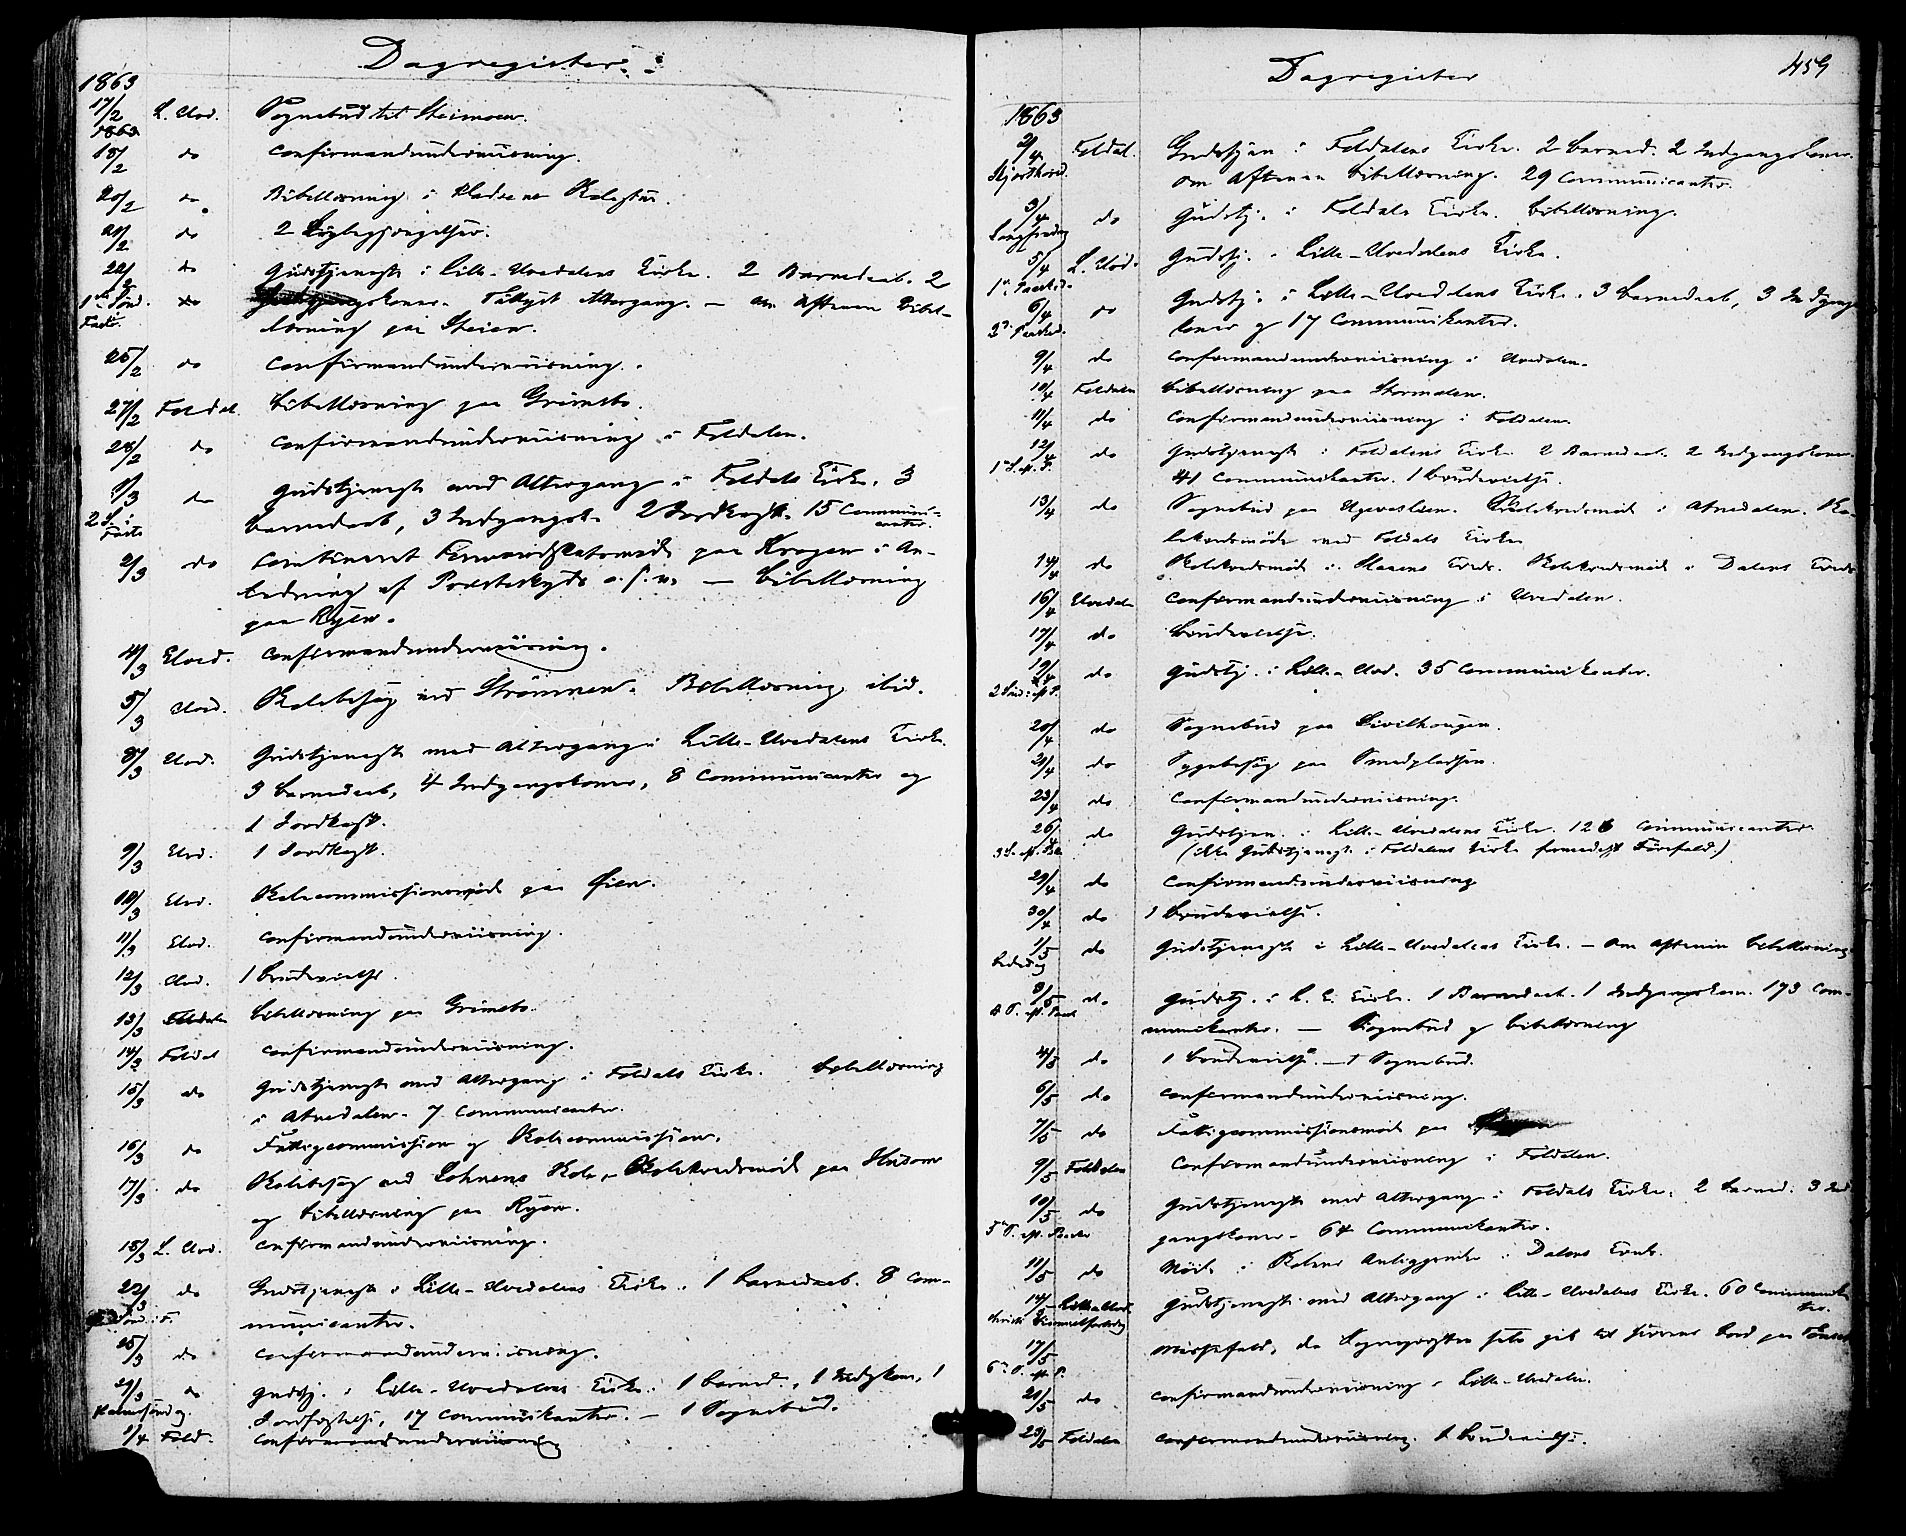 Dagregister
1863
17/2 L. Elvd. Sognebud til Steimoen.
1863
18/2 do Confirmandunderviisning.
20/2 do Bibellæsning i Pladsene
21/2 do 2
22/2 do Gudstjeneste i Lille-Elvedalens Kirke. 2 Barnedaab. 2
1ste Sønd. do gangskoner. Altergang. – Om Aftenen Bibel-
Faste. læsning paa Steien.
25/2 do Confirmandunderviisning.
27/2 Foldal. Bibellæsning paa Grimsbo.
28/2 do Confirmandunderviisning i Foldalen.
1/3 do Gudstjeneste med Altergang i Foldals Kirke. 3
2 S. i Faste Barnedaab, 3 Indgangsk. 2 Jordkast. 15 Communi-
canter.
2/3 do Combineret Formandskabsmøde paa Krogen i An-
ledning af Præsteskyds o.s.v. – Bibellæsning
paa Ryen.
4/3 Elved. Confirmandunderviisning.
5/3 Elved. Skolebesøg ved Strömmen. Bibellæsning ibid.
8/3 Elvd. Gudstjeneste med Altergang i Lille-Elvedalens Kirke.
3 Barnedaab, 4 Indgangskoner, 8 Communicanter og
1 Jordkast.
9/3 Elvd. 1 Jordkast.
10/3 Elvd. Skolecommissionsmøde paa Øien.
11/3 Elvd. Confirmandunderviisning.
12/3 Elvd. 1 Brudevielse.
13/3 Foldalen Bibellæsning paa Grimsbo.
14/3 Foldal Confirmandunderviisning.
15/3 do Gudstjeneste med Altergang i Foldals Kirke. Bibellæsning
i Atnedalen. 7 Communicanter.
16/3 do Fattigcommission og Skolecommission.
17/3 do Skolebesøg ved Skole, Skolekredsmøde paa Husom
og Bibellæsning paa Ryen.
18/3 L. Elvd. Confirmandunderviisning.
22/3 do Gudstjeneste i Lille-Elvedalens Kirke. 1 Barnedaab. 8 Com-
Sønd. i F. municanter.
25/3 do Confirmandunderviisning.
29/3 do Gudstj. i Lille-Elvedalens Kirke. 1 Barned., 1 Indgkone, 1
Palmesøndag Jordfæstelse, 17 Communikanter. – 1 Sognebud.
1/4 Fold. Confirmandunderviisning
Dagregister 459
1863
2/4 Foldal. Gudstjen. i Foldalens Kirke. 2 Barned. 2 Indgangskoner.
Skjærthorsd. Om Aftenen Bibellæsning. 29 Communicanter.
3/4 do Gudstj. i Foldals Kirke. Bibellæsning.
Langfredag
5/4 L. Elvd. Gudstj. i Lille-Elvedalens Kirke.
1ste Paasked.
6/4 do Gudstj. i Lille-Elvedalens Kirke. 3 Barnedaab, 3 Indgangs-
2d. Paasked. koner og 17 Communikanter.
9/4 do Confirmandunderviisning i Elvedalen.
10/4 Foldalen Bibellæsning paa Stormoen.
11/4 do Confirmandunderviisning i Foldalen.
12/4 do Gudstjeneste i Foldalens Kirke. 2 Barnedaab. 2 Indgangskoner.
1ste S. eft. P. 41 Communikanter. 1 Brudevielse.
13/4 do Sognebud paa Skolekredsmøde i Atnedalen. Sko-
lekredsmöde ved Foldals Kirke.
14/4 do Skolekredsmöde i Kreds. Skolekredsmöde i Dalens Kreds
16/4 Elvedalen Confirmandunderviisning i Elvedalen.
17/4 do Brudevielse.
19/4 do Gudstj. i Lille-Elvd. 35 Communikanter.
2 Sønd. eft. P.
20/4 do Sognebud paa
21/4 do Sygebesøg paa Smedpladsen.
23/4 do Confirmandunderviisning.
26/4 do Gudstjen. i Lille-Elvedalens Kirke. 126 Communicanter.
3 S. eft. Paa. (ikke Gudstjeneste i Foldalens Kirke formedelst Föresald.)
29/4 do Confirmandunderviisning
30/4 do 1 Brudevielse.
1/5 do Gudstjeneste i Lille-Elvedalens Kirke. – Om Aftenen Bibellæsning
Bededag
3/5 do Gudstj. i L. E. Kirke. 1 Barnedaab. 1 Indgangskone. 173 Com-
4 S. eft. Paask munikanter. – Sognebud og Bibellæsning
4/5 do 1 Brudevielse. – 1 Sognebud.
6/5 do Confirmandunderviisning.
7/5 do Fattigcommissionsmøde paa
9/5 Foldalen Confirmandunderviisning i Foldalen.
10/5 do Gudstjeneste med Altergang i Foldals Kirke. 2 Barned. 3 Ind-
5te S. eft. Paaske gangskoner. 64 Communikanter.
11/5 do Møde i Skolens Anliggender i Dalens Kreds.
14/5 Lille-Elvd. Gudstjeneste med Altergang i Lille-Elvedalens Kirke. 60 Communikan-
Christi Himmelfartsdag ter.
17/5 Messefald, da Sognepræsten selv gik til Herrens Bord paa Tönset
6te S. eft. P.
21/5 do Confirmandunderviisning i Lille-Elvedalen.
23/5 Foldalen Confirmandunderviisning. 1 Brudevielse.